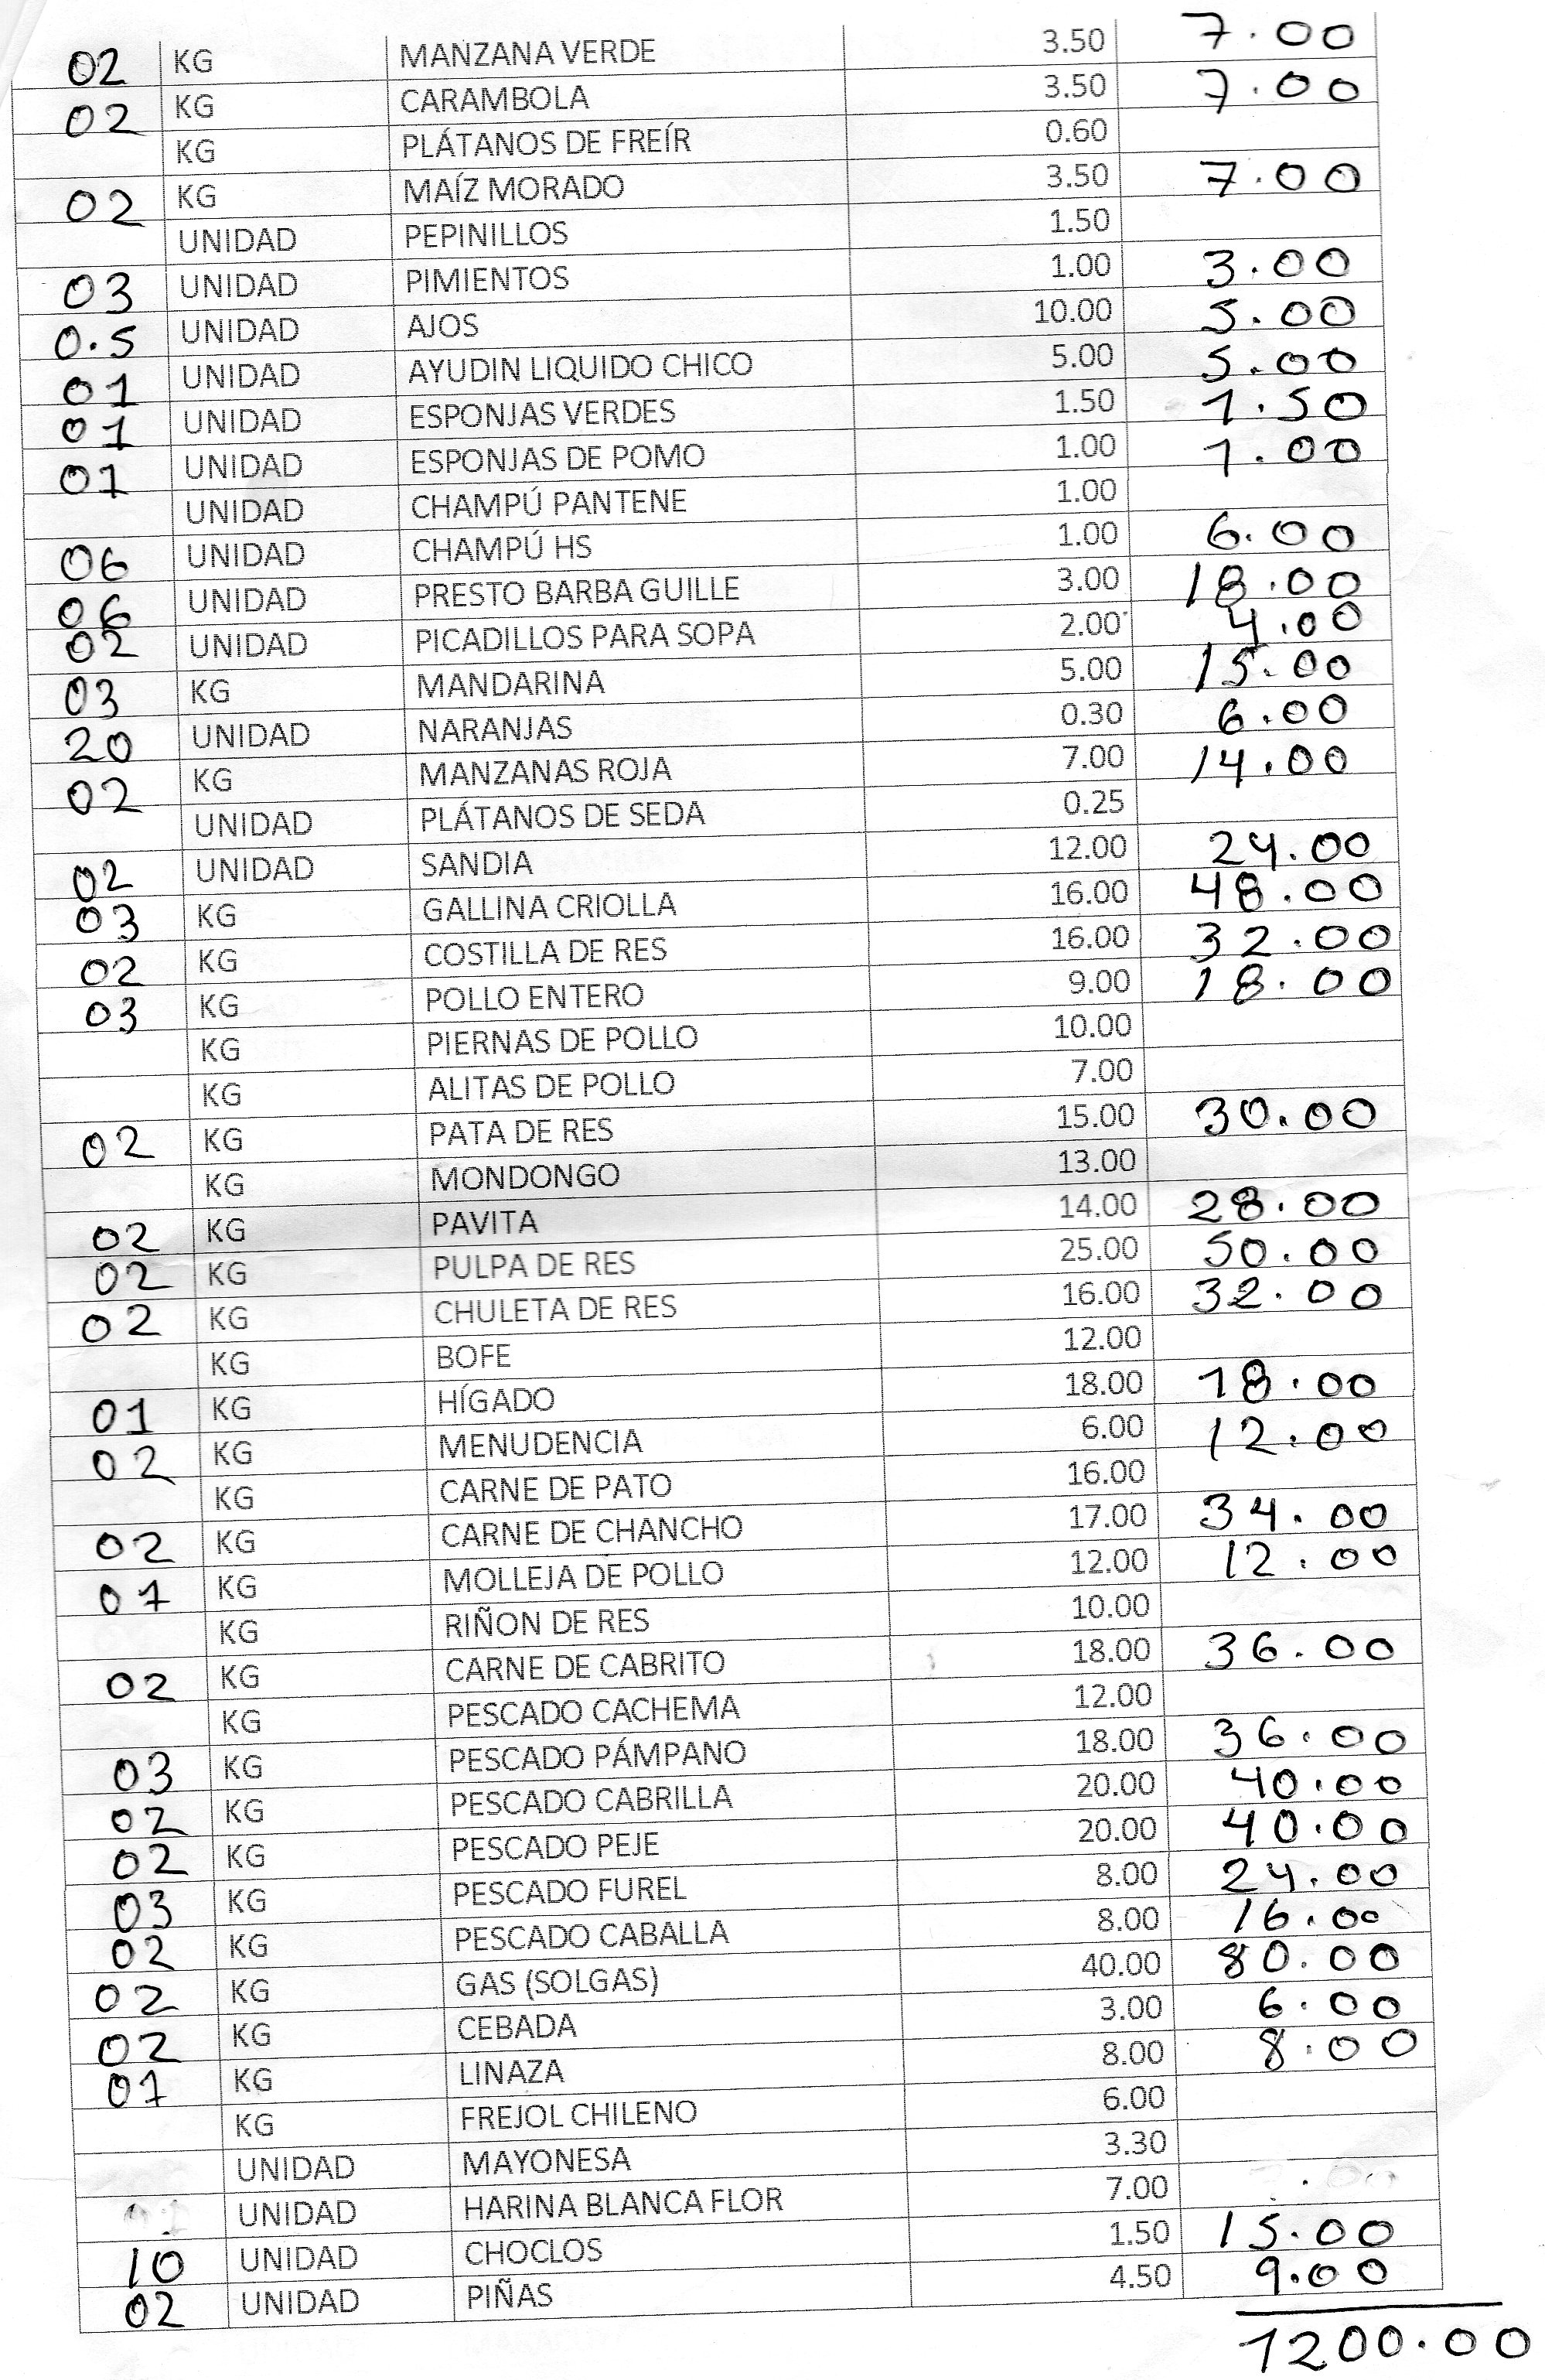 02 KG MANZANA VERDE 3.50 7.00
02 KG CARAMBOLA 3.50 7.00
KG PLÁTANOS DE FREÍR 0.60
02 KG MAÍZ MORADO 3.50 7.00
UNIDAD PEPINILLOS 1.50
03 UNIDAD PIMIENTOS 1.00 3.00
0.5 UNIDAD AJOS 10.00 5.00
01 UNIDAD AYUDIN LIQUIDO CHICO 5.00 5.00
01 UNIDAD ESPONJAS VERDES 1.50 1.50
01 UNIDAD ESPONJAS DE POMO 1.00 1.00
UNIDAD CHAMPÚ PANTENE 1.00
06 UNIDAD CHAMPÚ HS 1.00 6.00
06 UNIDAD PRESTO BARBA GUILLE 3.00 18.00
02 UNIDAD PICADILLOS PARA SOPA 2.00 4.00
03 KG MANDARINA 5.00 15.00
20 UNIDAD NARANJAS 0.30 6.00
02 KG MANZANAS ROJA 7.00 14.00
UNIDAD PLÁTANOS DE SEDA 0.25
02 UNIDAD SANDIA 12.00 24.00
03 KG GALLINA CRIOLLA 16.00 48.00
02 KG COSTILLA DE RES 16.00 32.00
03 KG POLLO ENTERO 9.00 18.00
KG PIERNAS DE POLLO 10.00
KG ALITAS DE POLLO 7.00
02 KG PATA DE RES 15.00 30.00
KG MONDONGO 13.00
02 KG PAVITA 14.00 28.00
02 KG PULPA DE RES 25.00 50.00
02 KG CHULETA DE RES 16.00 32.00
KG BOFE 12.00
01 KG HÍGADO 18.00 18.00
02 KG MENUDENCIA 6.00 12.00
KG CARNE DE PATO 16.00
02 KG CARNE DE CHANCHO 17.00 34.00
01 KG MOLLEJA DE POLLO 12.00 12.00
KG RIÑON DE RES 10.00
02 KG CARNE DE CABRITO 18.00 36.00
KG PESCADO CACHEMA 12.00
03 KG PESCADO PÁMPANO 18.00 36.00
02 KG PESCADO CABRILLA 20.00 40.00
02 KG PESCADO PEJE 20.00 40.00
03 KG PESCADO FUREL 8.00 24.00
02 KG PESCADO CABALLA 8.00 16.00
02 KG GAS (SOLGAS) 40.00 80.00
02 KG CEBADA 3.00 6.00
01 KG LINAZA 8.00 8.00
KG FREJOL CHILENO 6.00
UNIDAD MAYONESA 3.30
UNIDAD HARINA BLANCA FLOR 7.00
10 UNIDAD CHOCLOS 1.50 15.00
02 UNIDAD PIÑAS 4.50 9.00
1200.00